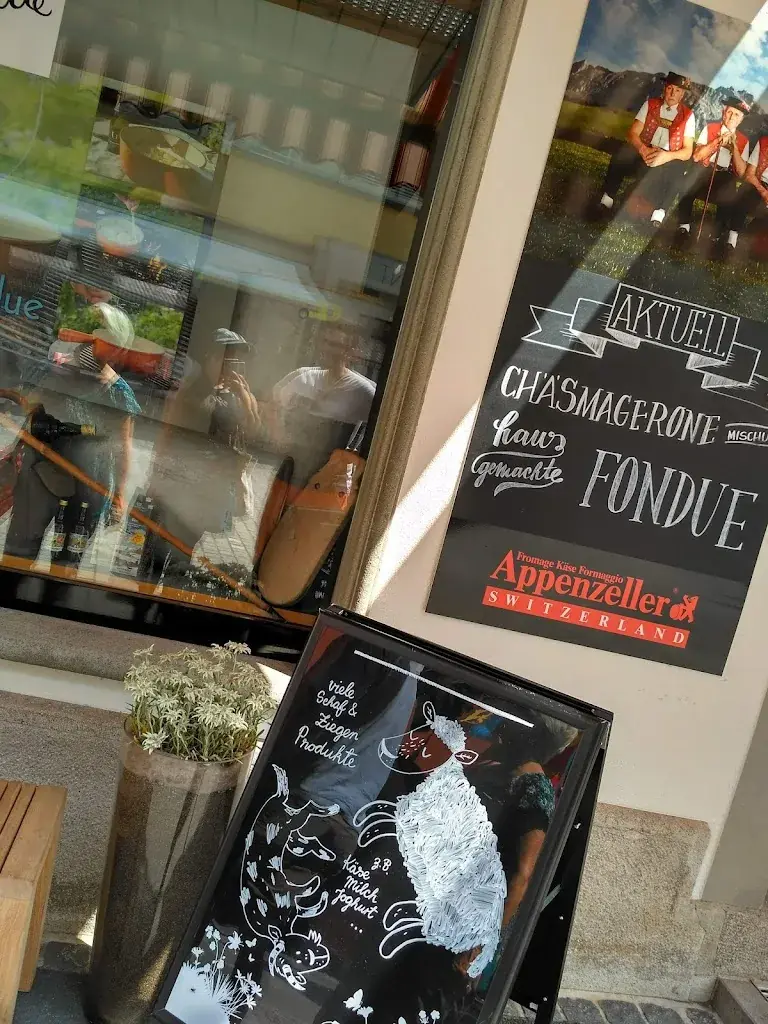 lue
AKTUELL
CHÄSMAGERONE
haus
gemachte
FONDUE
Fromage Käse Formaggio
Appenzeller
SWITZERLAND
viele
Schaf &
Ziegen
Produkte
z.B.
Käse
Milch
Joghurt
...